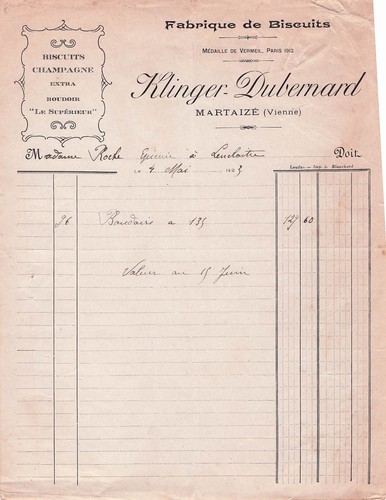 Fabrique de Biscuits
MÉDAILLE DE VERMEIL, PARIS 1912
BISCUITS
CHAMPAGNE
EXTRA
BOUDOIR
"LE SUPÉRIEUR"
Klinger-Dubernard
MARTAIZÉ (Vienne)
Madame Roche Epicerie à Lencloitre Doit
Loudun - Imp. A. Blanchard
Le 4 Mai 1923
96 Boudoirs a 135 129 60
Valeur au 15 Juin